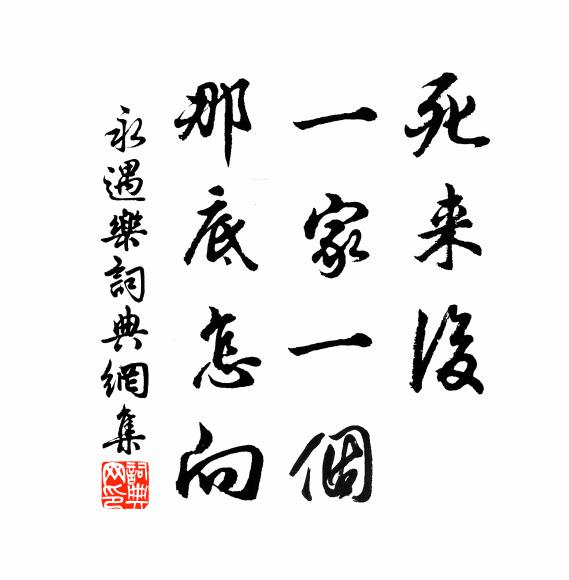 死来後
一家一個
那底怎向
永遇樂詞典網集
詞典
网印